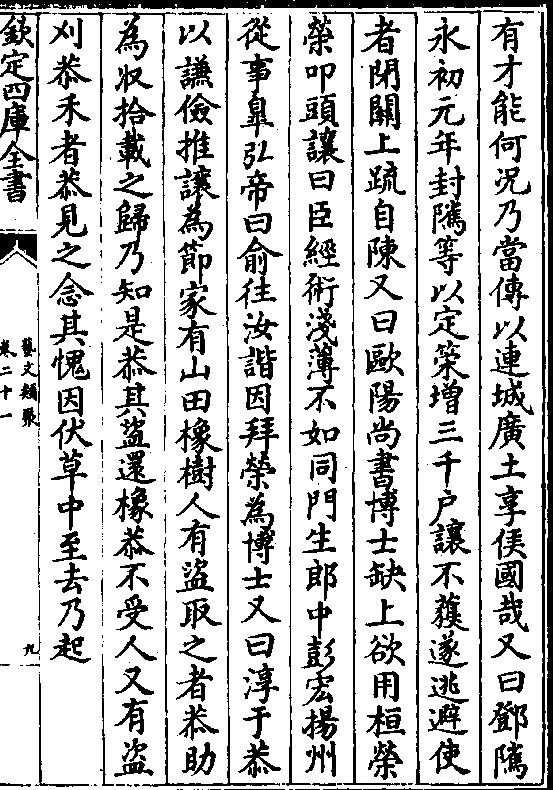 有才能何況乃當傳以連城廣土享侯國哉又曰鄧隲
永初元年封隲等以定策增三千户讓不獲遂逃避使
者閉關上疏自陳又曰歐陽尚書博士缺上欲用桓榮
榮叩頭讓曰臣經術淺薄不如同門生郎中彭宏揚州
從事臯弘帝曰俞往汝諧因拜榮為博士又曰淳于恭
以謙儉推讓為節家有山田橡樹人有盗取之者恭助
為収拾載之歸乃知是恭其盗還橡恭不受人又有盗
刈恭禾者恭見之念其愧因伏草中至去乃起
欽定四庫全書
藝文類聚
卷二十一
九